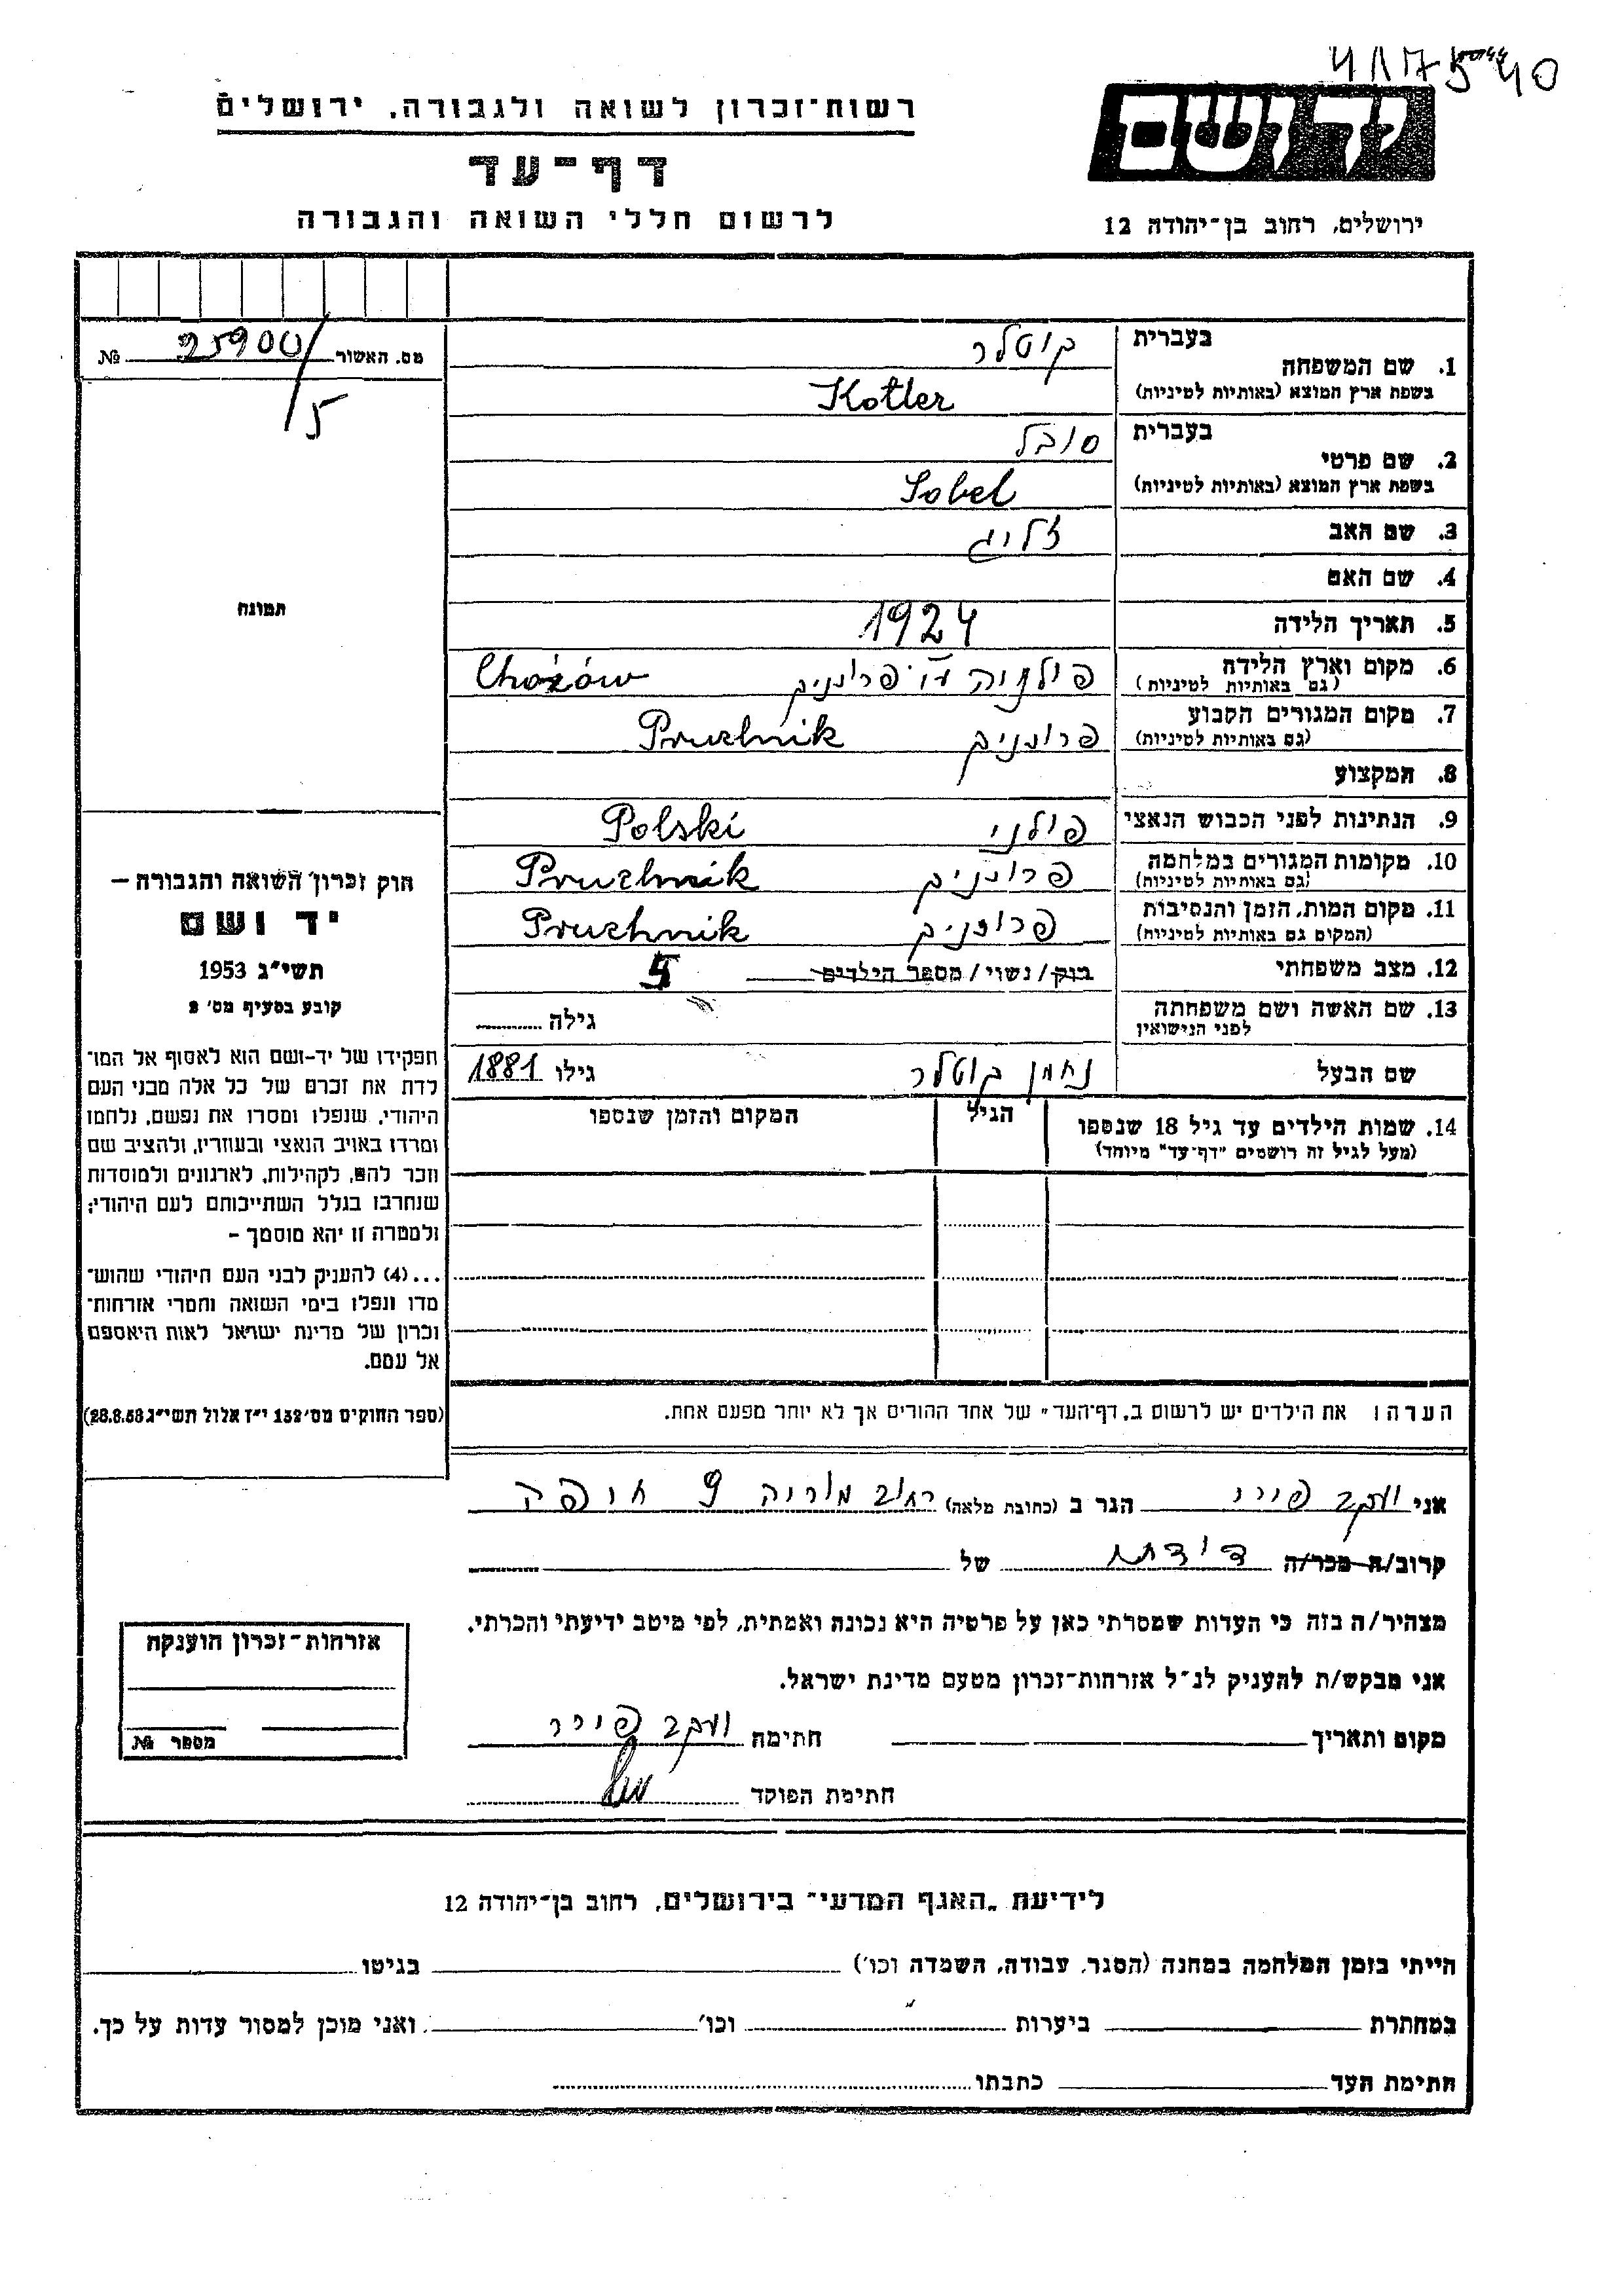 41175 40
ידושם
ירושלים, רחוב בן־יהודה 12
רשות־זכרון לשואה ולגבורה, ירושלים
דף־עד
לרשום חללי השואה והגבורה
מס. האשור 25900/5 №
תמונה
חוק זכרון השואה והגבורה —
יד ושם
תשי״ג 1953
קובע בסעיף מס׳ 2
תפקידו של יד-ושם הוא לאסוף אל המו־
לדת את זכרם של כל אלה מבני העם
היהודי, שנפלו ומסרו את נפשם, נלחמו
ומרדו באויב הנאצי ובעוזריו, ולהציב שם
וזכר להם, לקהילות, לארגונים ולמוסדות
שנחרבו בגלל השתייכותם לעם היהודי;
ולמטרה זו יהא מוסמך —
...(4) להעניק לבני העם היהודי שהוש־
מדו ונפלו בימי השואה והמרי אזרחות־
זכרון של מדינת ישראל לאות היאספם
אל עמם.
(ספר החוקים מס׳ 132 י״ז אלול תשי״ג 28.8.53)
1. שם המשפחה
בעברית קוטלר
בשפת ארץ המוצא (באותיות לטיניות) Kotler
2. שם פרטי
בעברית סובל
בשפת ארץ המוצא (באותיות לטיניות) Sobel
3. שם האב זליג
4. שם האם
5. תאריך הלידה 1924
6. מקום וארץ הלידה פולניה Chożów
(גם באותיות לטיניות)
7. מקום המגורים הקבוע פרוזניק Pruchnik
(גם באותיות לטיניות)
8. המקצוע
9. הנתינות לפני הכבוש הנאצי פולני Polski
10. מקומות המגורים במלחמה פרוזניק Pruchnik
(גם באותיות לטיניות)
11. מקום המות, הזמן והנסיבות פרוזניק Pruchnik
(המקום גם באותיות לטיניות)
12. מצב משפחתי רוק/נשוי/מספר הילדים
13. שם האשה ושם משפחתה גילה
לפני הנישואין
שם הבעל נחמן קוטלר גילו 1881
14. שמות הילדים עד גיל 18 שנספו הגיל המקום והזמן שנספו
(מעל לגיל זה רושמים ״דף־עד״ מיוחד)
הערה: את הילדים יש לרשום ב„דף־העד״ של אחד ההורים אך לא יותר מפעם אחת.
אני יעקב הגר ב (כתובת מלאה) רחוב מוריה 9 חיפה
קרוב/ה מכר/ה דודתו של
מצהיר/ה בזה כי העדות שמסרתי כאן על פרטיה היא נכונה ואמתית, לפי מיטב ידיעתי והכרתי.
אני מבקש/ת להעניק לנ״ל אזרחות־זכרון מטעם מדינת ישראל.
מקום ותאריך חתימה יעקב
חתימת הפוקד
אזרחות־זכרון הוענקה
מספר №
לידיעת „האגף המדעי״ בירושלים, רחוב בן־יהודה 12
הייתי בזמן המלחמה במחנה (הסגר, עבודה, השמדה וכו׳) בגיטו
במחתרת ביערות וכו׳ ואני מוכן למסור עדות על כך.
חתימת העד כתבתו